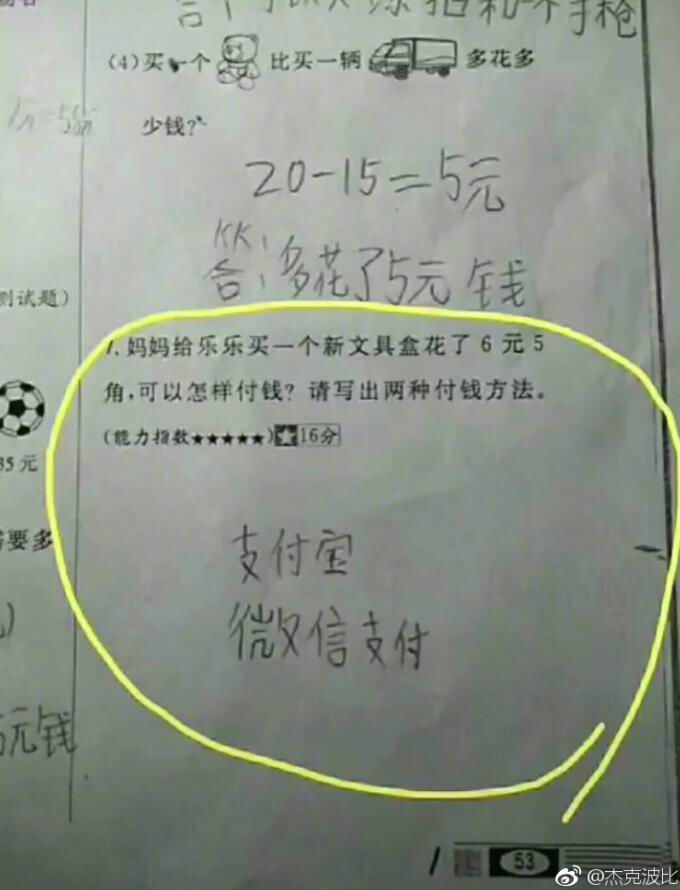 (4)买 个 比买一辆 多花多
少钱?
20-15=5元
答:多花了5元钱
测试题)
7.妈妈给乐乐买一个新文具盒花了6元5
角,可以怎样付钱?请写出两种付钱方法。
(能力指数★★★★★)★16分
35元
需要多
支付宝
微信支付
5元钱
53
@杰克波比